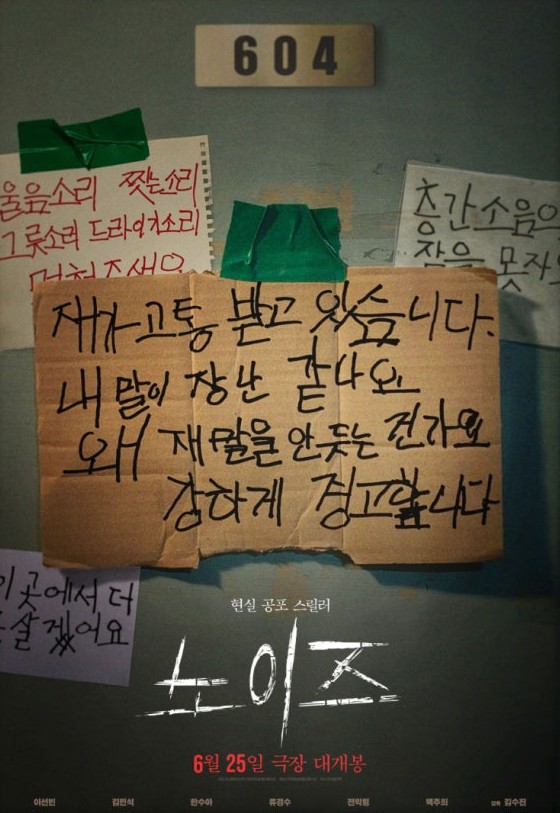 604
울음소리 찢는소리
그릇소리 드라이기소리
멈춰주세요
층간소음으
잠을 못자요
재가 고통 받고 있습니다.
내 말이 장난 같나요
왜 재말을 안듯는 건가요
강하게 경고합니다
이 곳에서 더
살겠어요
현실 공포 스릴러
노이즈
6월 25일 극장 대개봉
이선빈 김민석 한수아 류경수 전익령 백주희 감독 김수진